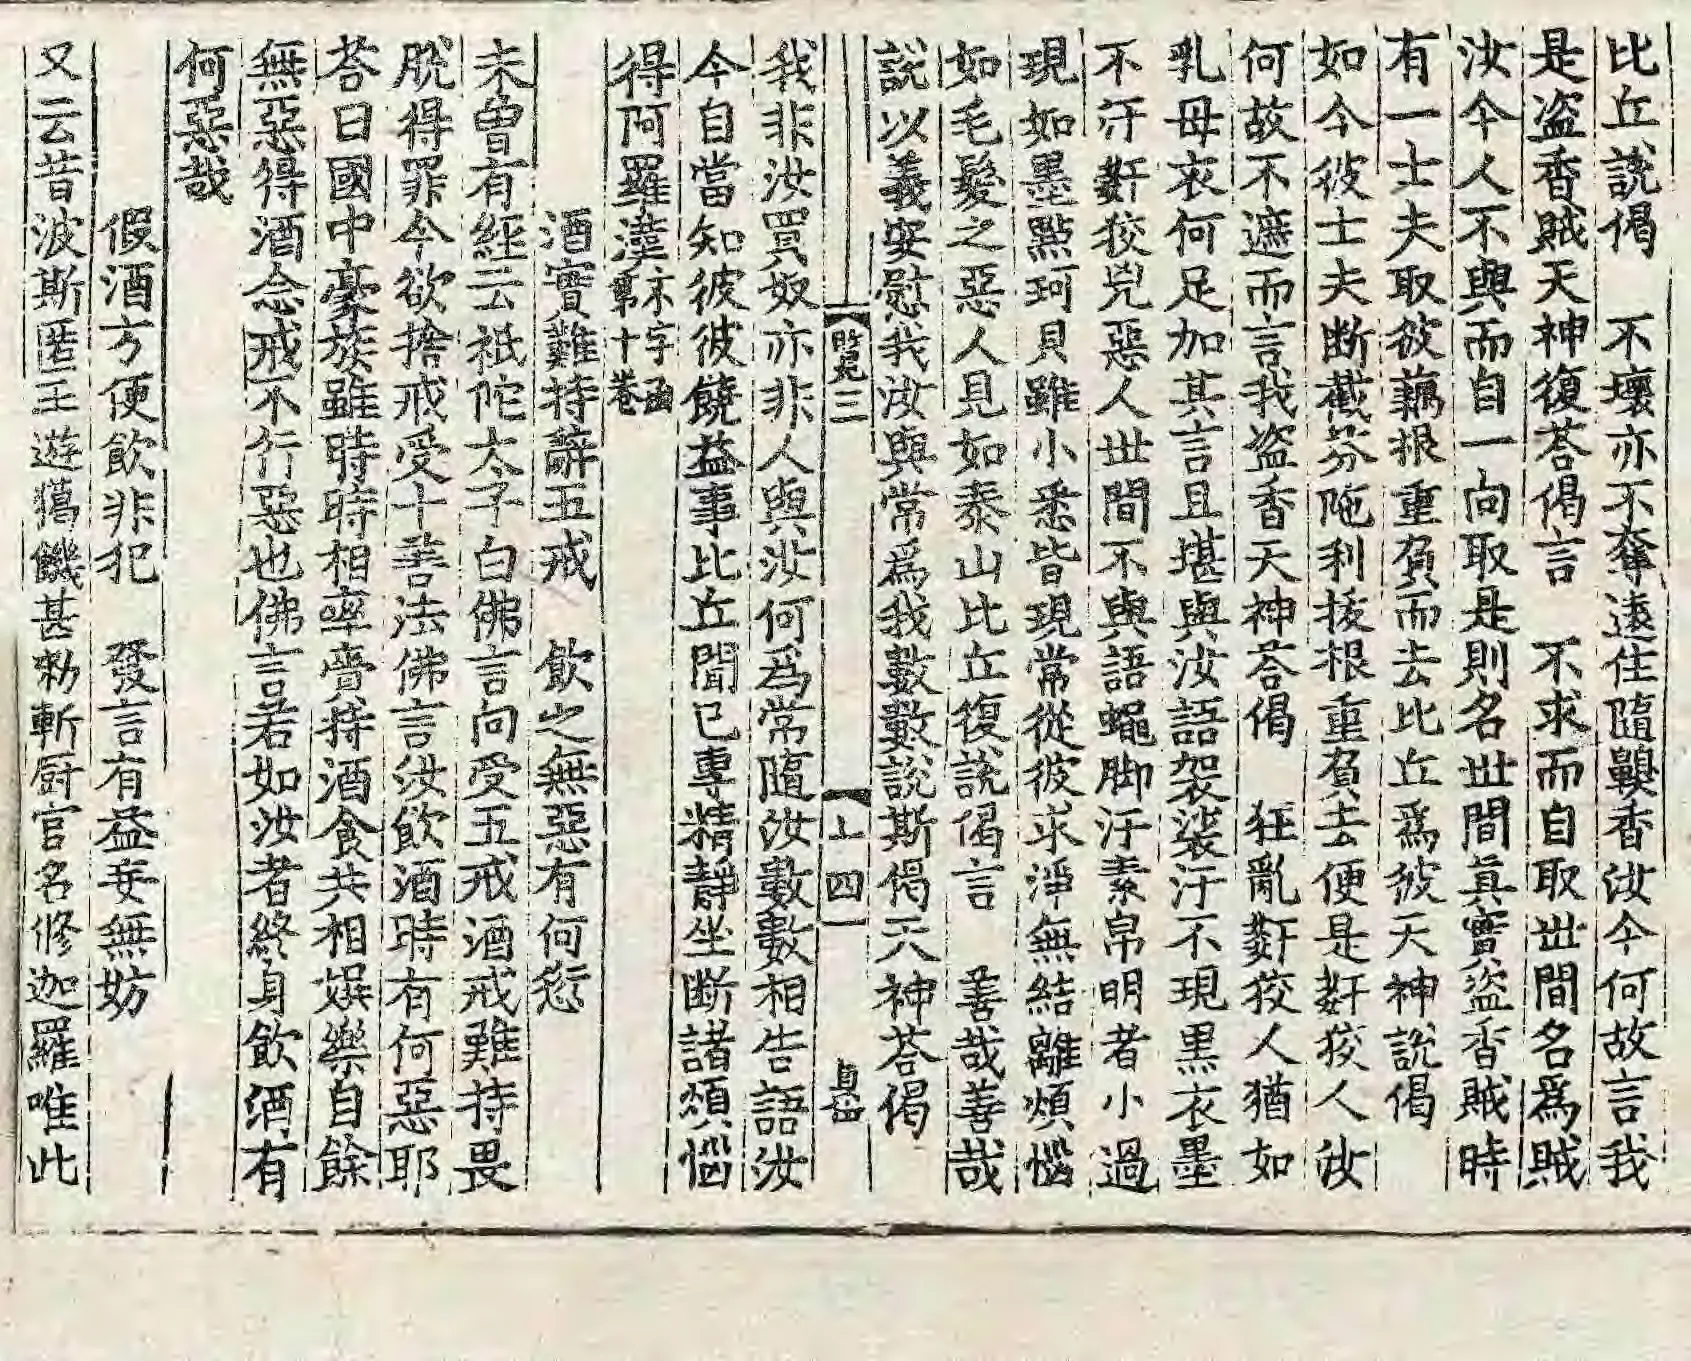 比丘說偈　不壞亦不奪遠住隨齅香汝今何故言我
是盜香賊天神復荅偈言　不求而自取世間名爲賊
汝今人不與而自一向取是則名世間眞實盜香賊時
有一士夫取彼藕根重負而去比丘爲彼天神說偈
如今彼士夫断截芬陁利拔根重負去便是姧狡人汝
何故不遮而言我盜香天神荅偈　狂亂姧狡人猶如
乳母衣何足加其言且堪與汝語袈裟汙不現黒衣墨
不汙姧狡兇惡人世間不與語蠅脚汙素帛明者小過
現如墨點珂貝雖小悉皆現常從彼求淨無結離煩惱
如毛髮之惡人見如泰山比丘復說偈言　善哉善哉
說以義安慰我汝與常爲我數數說斯偈天神荅偈
三　上四
我非汝買奴亦非人與汝何爲常隨汝數數相告語汝
今自當知彼彼饒益事比丘聞已專精靜坐断諸煩惱
得阿羅漢亦字函第十卷
酒實難持辭五戒　飲之無惡有何愆
未曽有經云祇陀太子白佛言向受五戒酒戒難持畏
脫得罪今欲捨戒受十善法佛言汝飲酒時有何惡耶
荅曰國中豪族雖時時相率齎持酒食共相娯樂自餘
無惡得酒念戒不行惡也佛言若如汝者終身飲酒有
何惡哉
假酒方便飲非犯　發言有益妄無妨
又云昔波斯匿王遊獦饑甚勑斬厨官名修迦羅唯此